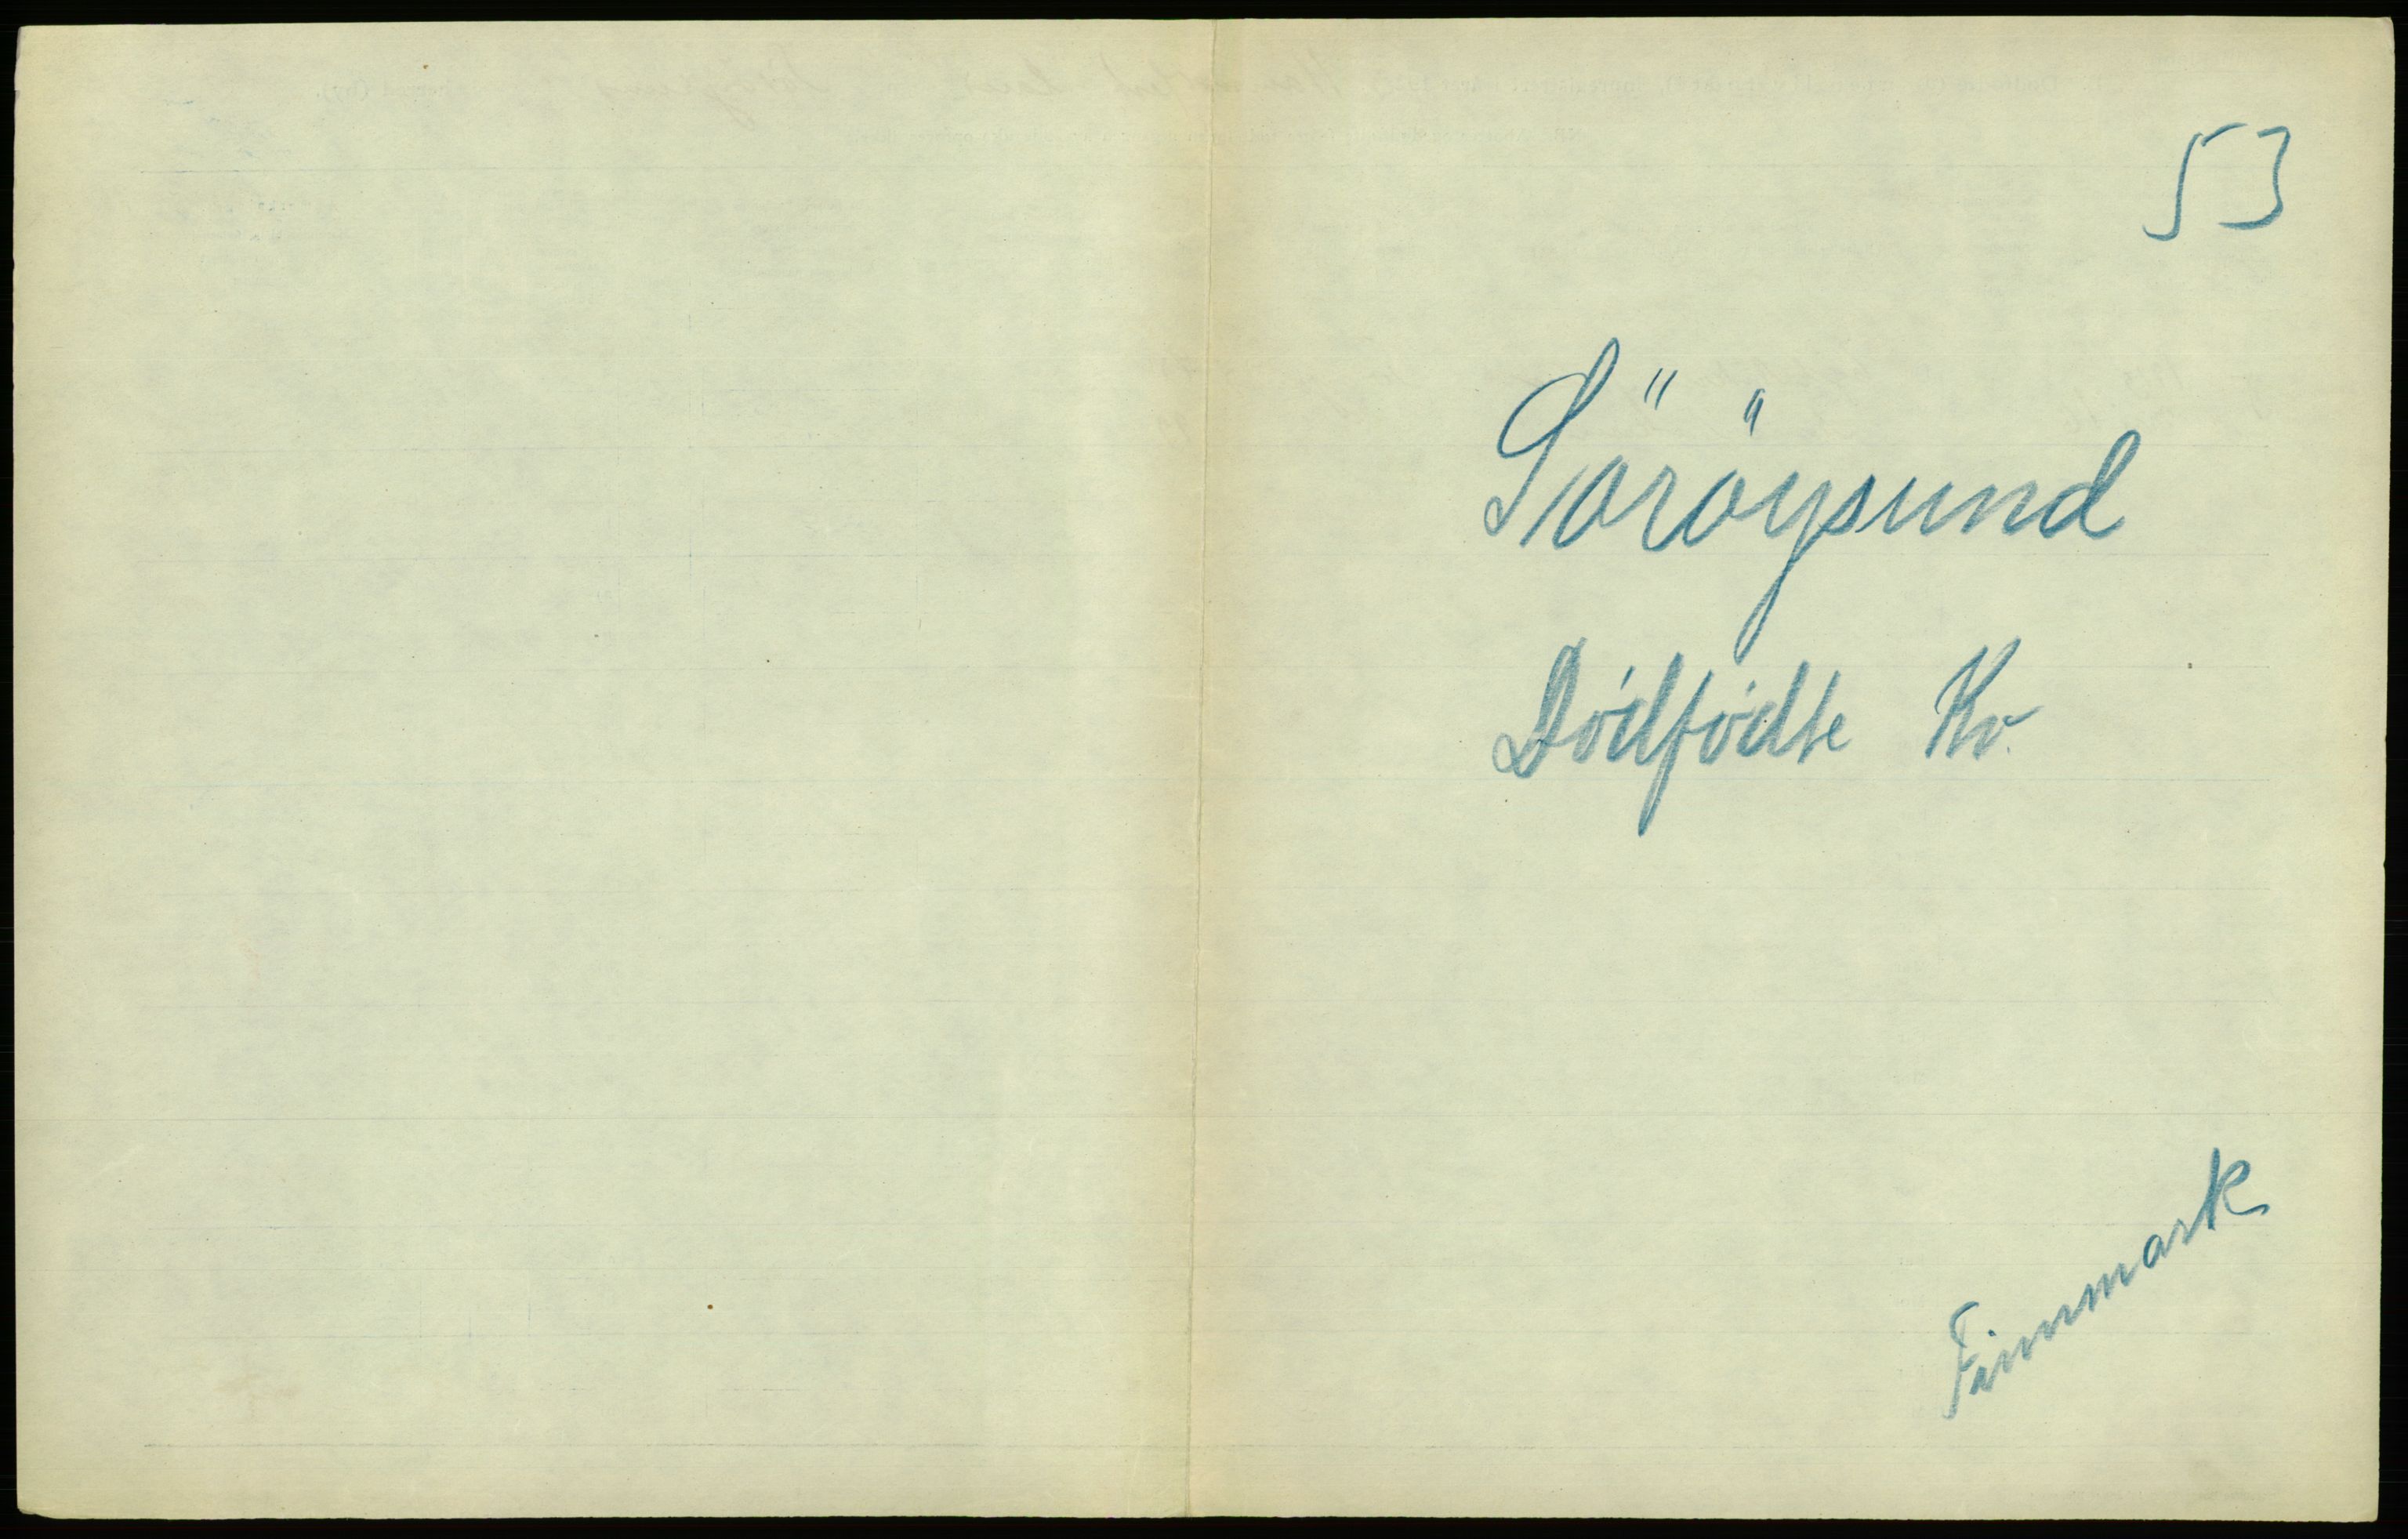 53
Söröysund
Dödfödte Kv.
Finnmark